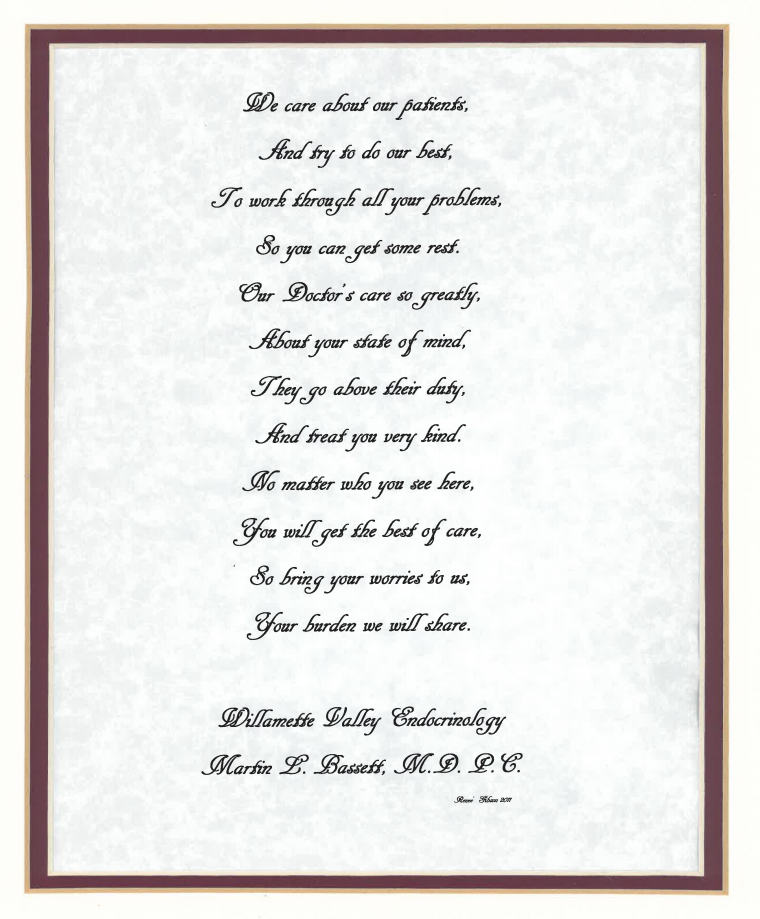 We care about our patients,
And try to do our best,
To work through all your problems,
So you can get some rest.
Our Doctor's care so greatly,
About your state of mind,
They go above their duty,
And treat you very kind.
No matter who you see here,
You will get the best of care,
So bring your worries to us,
Your burden we will share.
Willamette Valley Endocrinology
Martin L. Bassett, M.D. P.C.
2011